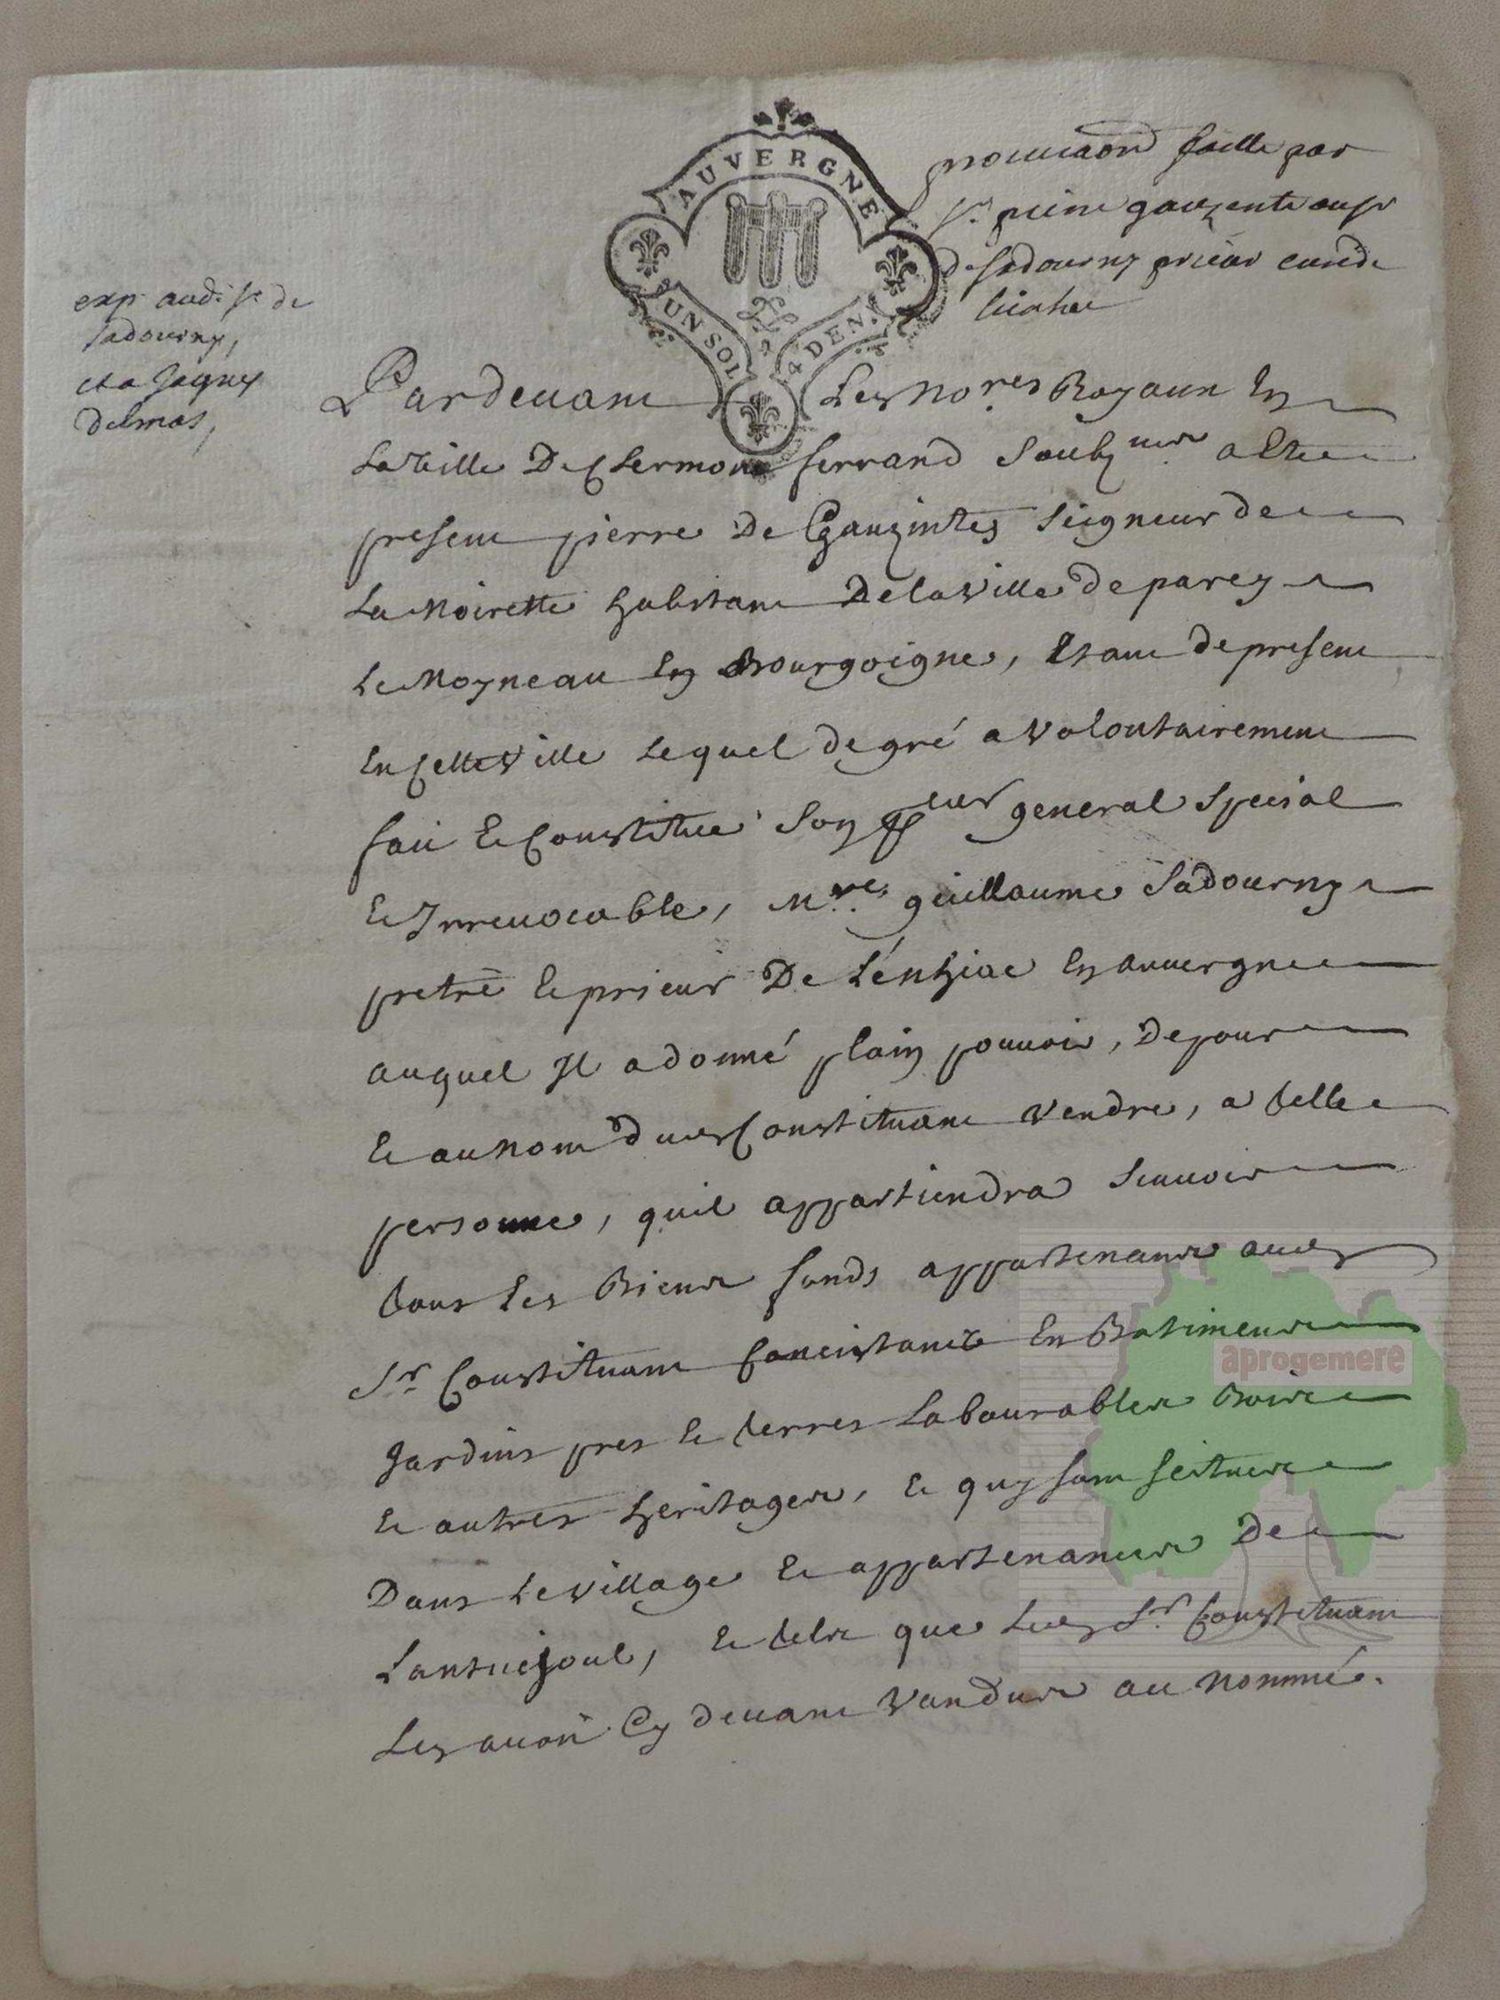 AUVERGNE
UN SOL 4 DEN.
procuraon faitte par
sr pierre gauzente au sr
de sadourny prieur curé de
exp. aud. sr de
sadourny,
et a Jaques
delmas,
Pardevant Les No.res Royaux En
La Ville De Clermont ferrand Soubz.nes a Este
present pierre De Gauzintes Seigneur de
La Noirette habitant De la Ville de parey
Le Moyneau En Bourgoigne, Estant de present
En Cette Ville Lequel de gré a volontairement
fait Et Constitué Son p.eur general Special
Et Irrevocable, M.re guillaume Sadourny
pretre Et prieur De Lénthiac En auvergne
auquel Il a donné plain pouvoir, De pour
Et au Nom dud Constituant Vendre, a telle
personne, quil appartiendra Scauoir
tous Les Biens fonds appartenants aud
Sr Constituant Concistants En Batiments
Jardins pres Et terres Labourables Bois
Et autres heritages, Et quy sont scitués
Dans Le Village Et appartenances De
Lantuejoul, Et tels que Led Sr Constituant
Les avoit Cy devant Vandus au Nommé.
aprogemere